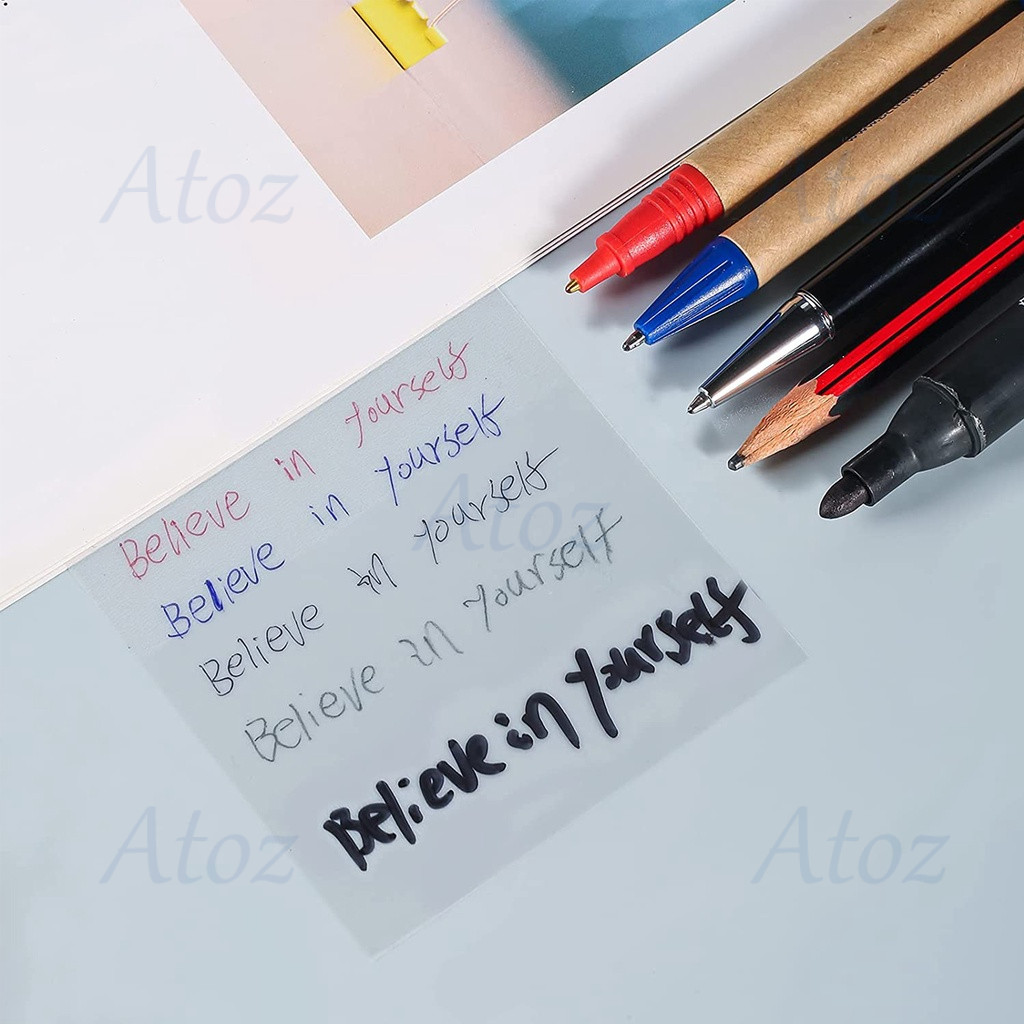 Atoz
Atoz
Believe in yourself
Believe in yourself
Believe in yourself
Atoz
Believe in yourself
Believe in yourself
Atoz
Atoz